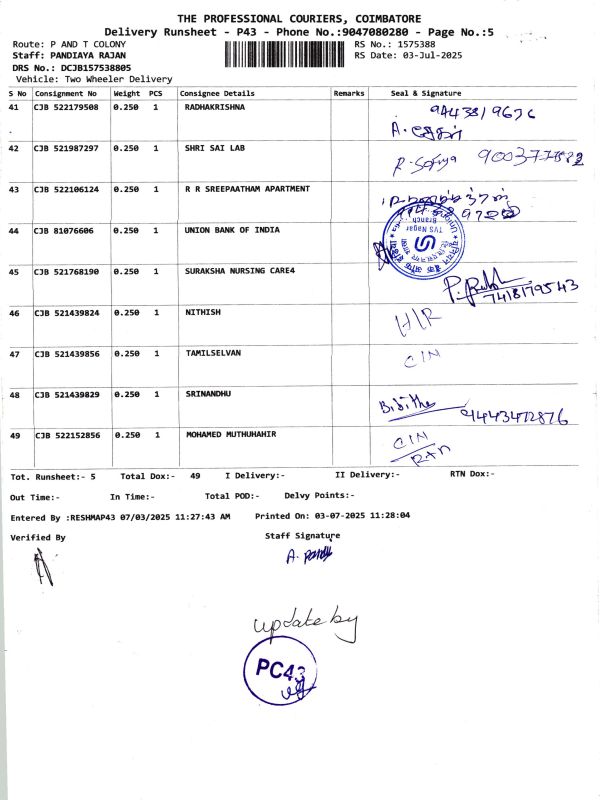 THE PROFESSIONAL COURIERS, COIMBATORE
Delivery Runsheet - P43 - Phone No.:9047080280 - Page No.:5
Route: P AND T COLONY RS No.: 1575388
Staff: PANDIAYA RAJAN RS Date: 03-Jul-2025
DRS No.: DCJB157538805
Vehicle: Two Wheeler Delivery
S No Consignment No Weight PCS Consignee Details Remarks Seal & Signature
41 CJB 522179508 0.250 1 RADHAKRISHNA
42 CJB 521987297 0.250 1 SHRI SAI LAB R. Sofiya
43 CJB 522106124 0.250 1 R R SREEPAATHAM APARTMENT
44 CJB 81076606 0.250 1 UNION BANK OF INDIA TVS Nagar Branch
45 CJB 521768190 0.250 1 SURAKSHA NURSING CARE4 7418179543
46 CJB 521439824 0.250 1 NITHISH H/R
47 CJB 521439856 0.250 1 TAMILSELVAN C/N
48 CJB 521439829 0.250 1 SRINANDHU 9443472876
49 CJB 522152856 0.250 1 MOHAMED MUTHUHAHIR C/N
Tot. Runsheet:- 5 Total Dox:- 49 I Delivery:- II Delivery:- RTN Dox:-
Out Time:- In Time:- Total POD:- Delvy Points:-
Entered By :RESHMAP43 07/03/2025 11:27:43 AM Printed On: 03-07-2025 11:28:04
Verified By Staff Signature
update by
PC43